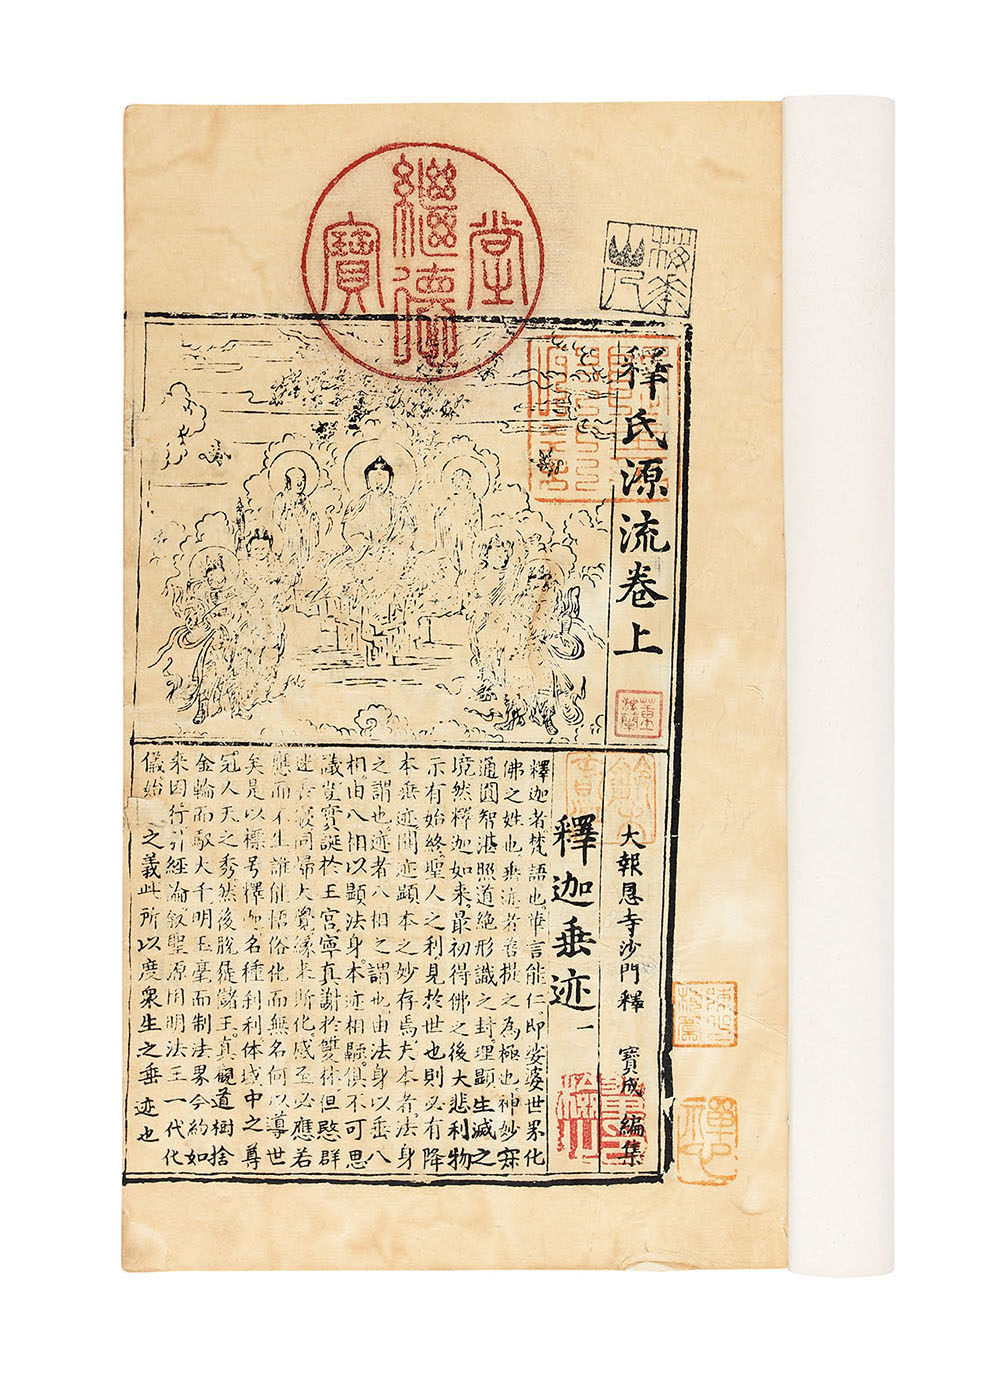 繼德堂寶
梅花山人
釋氏源流卷上
大報恩寺沙門釋 寶成 編集
釋迦垂迹一
釋迦者梵語也華言能仁即娑婆世界化
佛之姓也垂迹者菩提之為極也神妙寂
通圓智湛照道絶形識之封理顯生滅之
境然釋迦如来最初得佛之後大悲利物
示有始終聖人之利見於世也則必有降
本垂迹開迹顯本之妙存焉夫本者法身
之謂也迹者八相之謂也由法身以垂八
相由八相以顯法身本迹相融俱不可思
議豈實誕於王宮寧真謝於雙林但愍群
迷長寢同歸大覺緣来斯化感至必應若
應而不生誰能悟俗化而無名何以導世
矣是以標号釋迦名種刹利体域中之尊
冠人天之秀然後脫屣儲王真觀道樹捨
金輪而馭大千明玉毫而制法界今約如
来因行引經論叙聖源用明法王一代化
儀始之義此所以度衆生之垂迹也